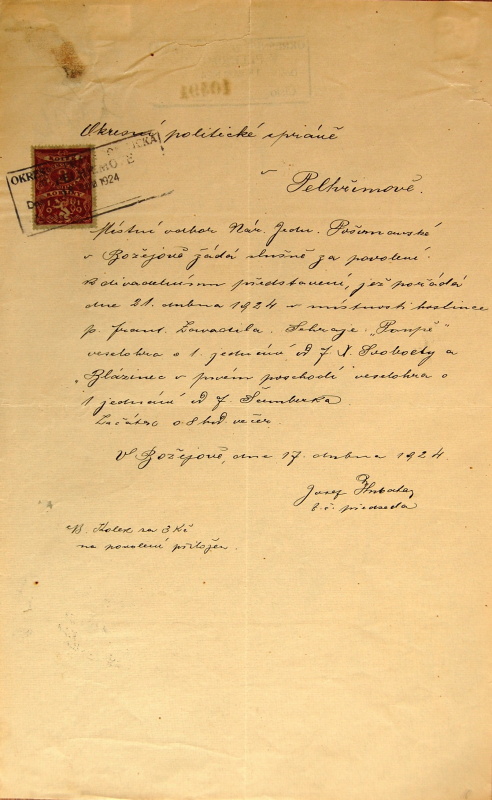 Okresní politické správě
v
Pelhřimově.
Místní odbor Nár. Jedn. Pošumavské
v Božejově žádá slušně za povolení
k divadelnímu představení, jež pořádá
dne 21. dubna 1924 v místnosti hostince
p. Frant. Zavadila. Sehraje "Pumpě"
veselohra o 1. jednání od F. X. Svobody a
"Blázinec v prvém poschodí" veselohra o
1 jednání od F. Šamberka
Začátek o 8 hod. večer.
V Božejově, dne 17. dubna 1924.
Josef
t. č. předseda
Kolek za 3 Kč
na povolení přiložen.
1924